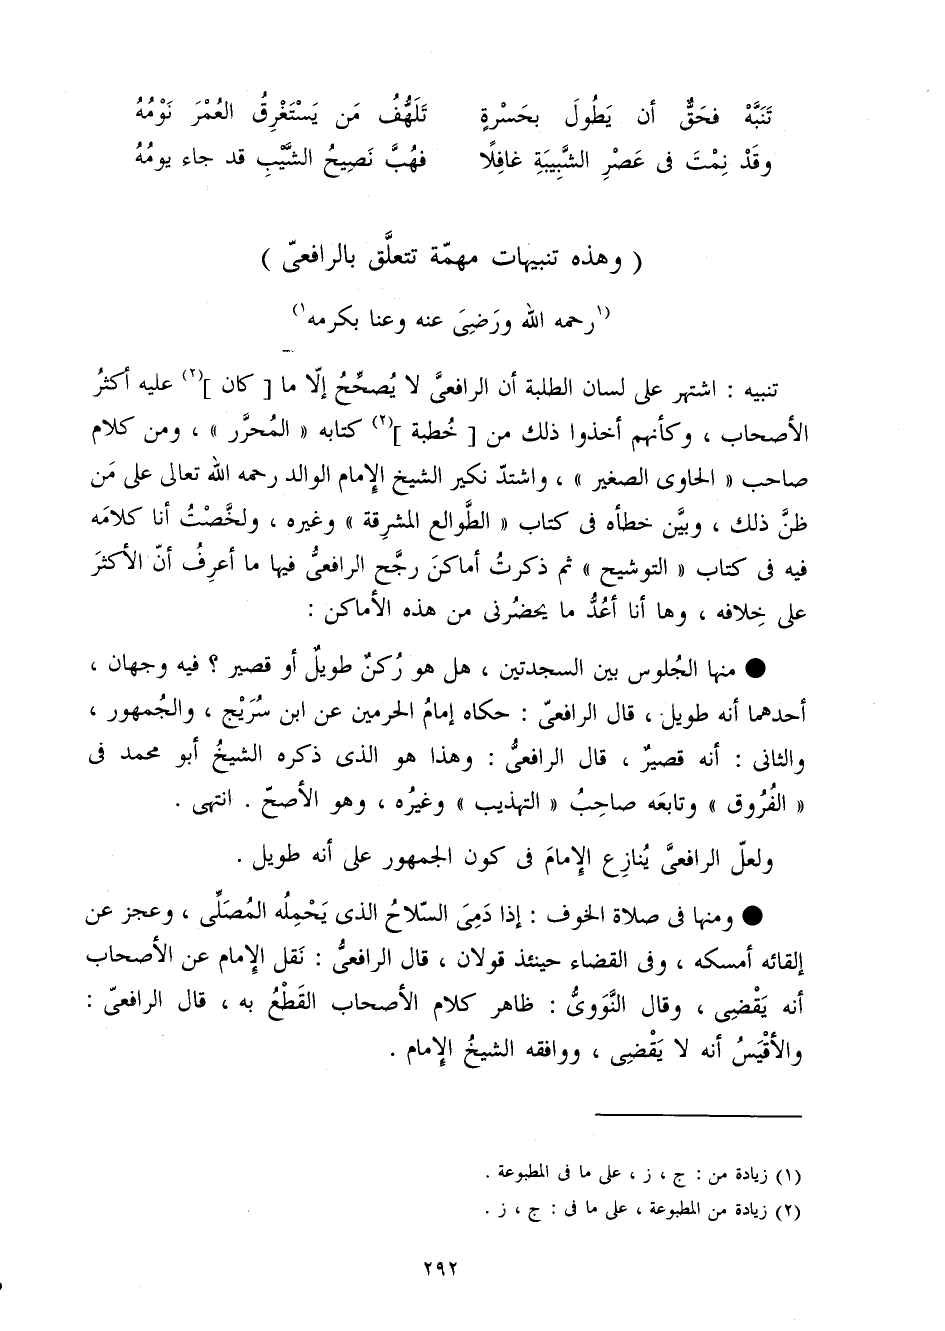 تَنَبَّهْ فحَقٌّ أن يَطُولَ بحَسْرةٍ تَلَهُّفُ مَن يَسْتَغْرِقُ العُمْرَ نَوْمُهُ
وقَدْ نِمْتَ فى عَصْرِ الشَّبِيبَةِ غافِلًا فهُبَّ نَصِيحُ الشَّيْبِ قد جاء يومُهُ
( وهذه تنبيهات مهمّة تتعلَّق بالرافعىّ )
(١رحمه الله ورَضِىَ عنه وعنا بكرمه١)
تنبيه : اشتهر على لسان الطلبة أن الرافعىَّ لا يُصحِّحُ إلّا ما [ كان ](٢) عليه أكثرُ
الأصحاب ، وكأنهم أخذوا ذلك من [ خُطبة ](٢) كتابه « المُحرَّر » ، ومن كلام
صاحب « الحاوى الصغير » ، واشتدّ نكير الشيخ الإمام الوالد رحمه الله تعالى على مَن
ظنَّ ذلك ، وبيَّن خطأه فى كتاب « الطَّوالع المشرقة » وغيره ، ولخَّصْتُ أنا كلامَه
فيه فى كتاب « التوشيح » ثم ذكرتُ أماكنَ رجَّح الرافعىُّ فيها ما أعرِفُ أنّ الأكثرَ
على خِلافه ، وها أنا أعُدُّ ما يحضُرنى من هذه الأماكن :
● منها الجُلوس بين السجدتين ، هل هو رُكنٌ طويلٌ أو قصير ؟ فيه وجهان ،
أحدهما أنه طويل ، قال الرافعىّ : حكاه إمامُ الحرمين عن ابن سُرَيْج ، والجُمهور ،
والثانى : أنه قصيرٌ ، قال الرافعىُّ : وهذا هو الذى ذكره الشيخُ أبو محمد فى
« الفُرُوق » وتابعَه صاحِبُ « التهذيب » وغيرُه ، وهو الأصحّ . انتهى .
ولعلّ الرافعىَّ يُنازِع الإمامَ فى كون الجمهور على أنه طويل .
● ومنها فى صلاة الخوف : إذا دَمِىَ السّلاحُ الذى يَحْمِلُه المُصَلِّى ، وعجز عن
إلقائه أمسكه ، وفى القضاء حينئذ قولان ، قال الرافعىُّ : نَقل الإمام عن الأصحاب
أنه يَقْضِى ، وقال النَّوَوىُّ : ظاهر كلام الأصحاب القَطْعُ به ، قال الرافعىّ :
والأقْيَسُ أنه لا يَقْضِى ، ووافقه الشيخُ الإمام .
(١) زيادة من : ج ، ز ، على ما فى المطبوعة .
(٢) زيادة من المطبوعة ، على ما فى : ج ، ز .
٢٩٢